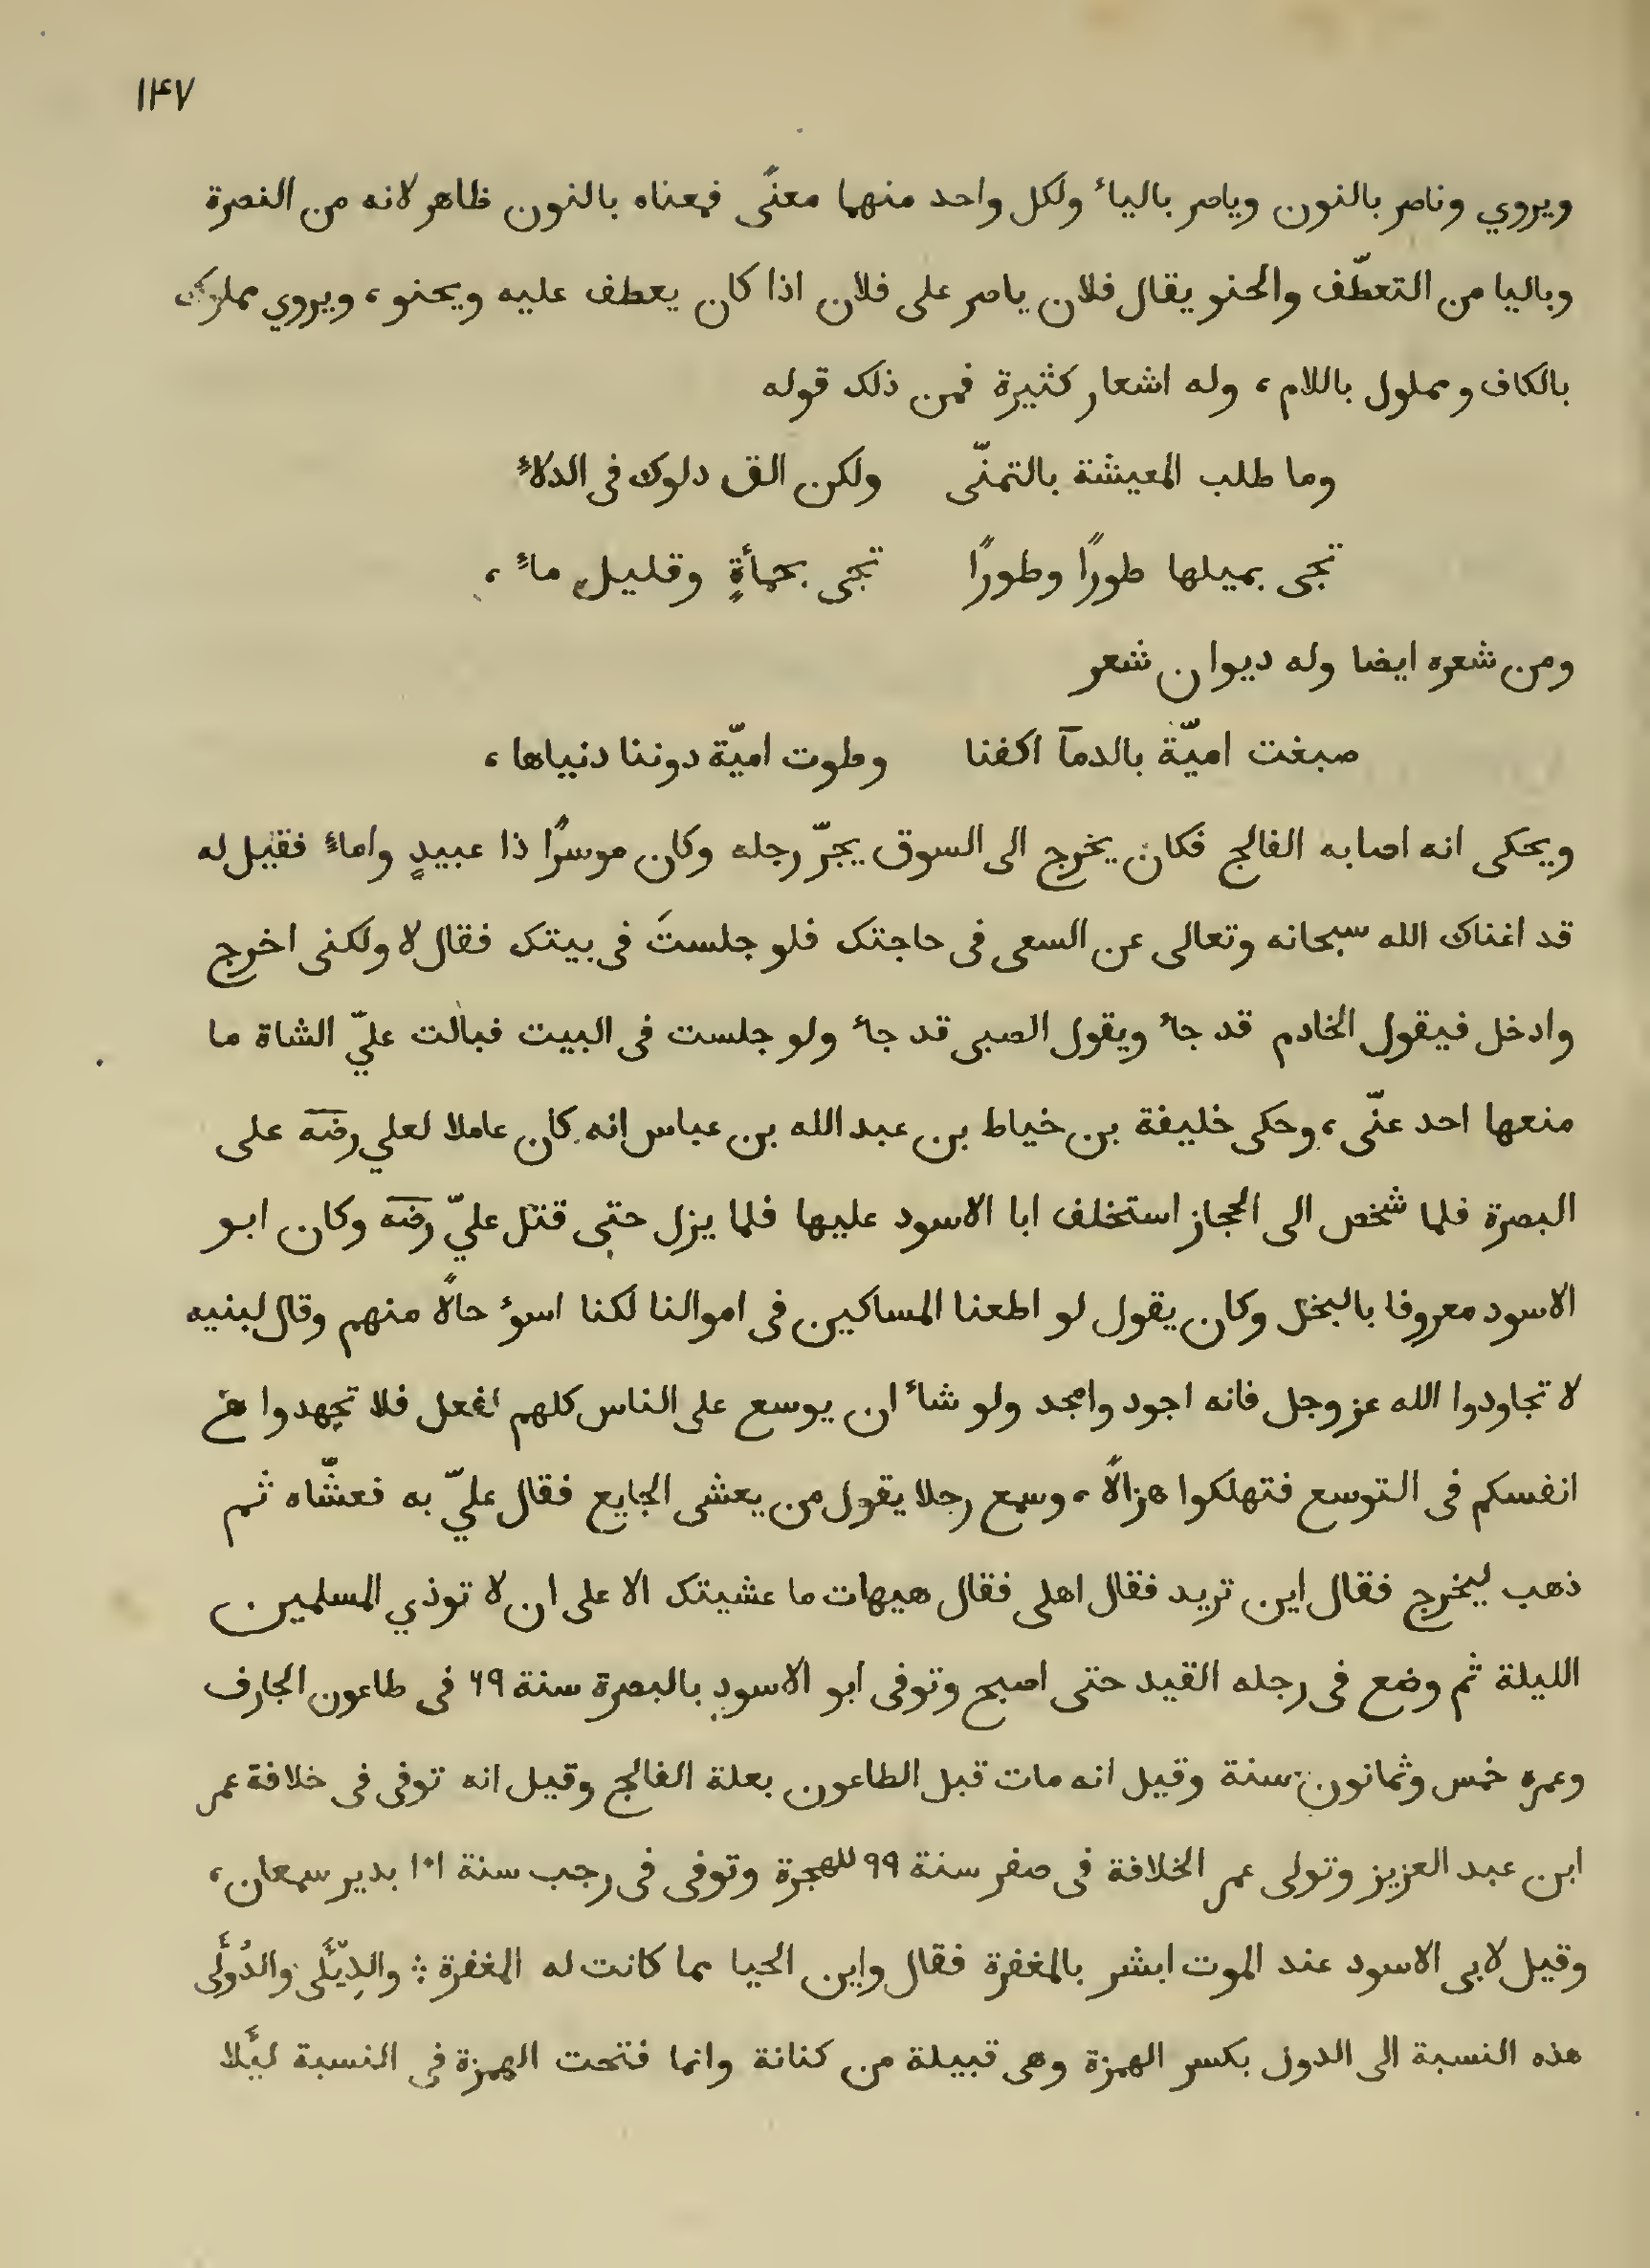 ١٤٧
ويروي وناصر بالنون وياصر بالياء ولكل واحد منهما معنًى فمعناه بالنون ظاهر لانه من النصرة
وباليا من التعطّف والحنو يقال فلان ياصر على فلان اذا كان يعطف عليه ويحنو، ويروي مملوك
بالكاف ومملول باللام، وله اشعار كثيرة فمن ذلك قوله
وما طلب المعيشة بالتمنّى ولكن الق دلوك فى الدلاءِ
تجى بميلها طورًا وطورًا تجى بحمأةٍ وقليلِ ماءِ،
ومن شعره ايضا وله ديوان شعر
صبغت اميّة بالدمآ اكفنا وطوت اميّة دوننا دنياها،
ويحكى انه اصابه الفالج فكان يخرج الى السوق يجرّ رجله وكان موسرًا ذا عبيدٍ واماءٍ فقيل له
قد اغناك الله سبحانه وتعالى عن السعى فى حاجتك فلو جلستَ فى بيتك فقال لا ولكنى اخرج
وادخل فيقول الخادم قد جاء ويقول الصبى قد جاء ولو جلست فى البيت فبالت عليّ الشاة ما
منعها احد عنّى، وحكى خليفة بن خياط بن عبد الله بن عباس انه كان عاملا لعلي رضه على
البصرة فلما شخص الى الحجاز استخلف ابا الاسود عليها فلما يزل حتى قتل عليّ رضه وكان ابو
الاسود معروفا بالبخل وكان يقول لو اطعنا المساكين فى اموالنا لكنا اسوء حالاً منهم وقال لبنيه
لا تجاودوا الله عز وجل فانه اجود وامجد ولو شاء ان يوسع على الناس كلهم لفعل فلا تجهدوا
انفسكم فى التوسع فتهلكوا هزالاً، وسمع رجلا يقول من يعشى الجايع فقال عليّ به فعشّاه ثم
ذهب ليخرج فقال اين تريد فقال اهلى فقال هيهات ما عشيتك الا على ان لا توذي المسلمين
الليلة ثم وضع فى رجله القيد حتى اصبح وتوفى ابو الاسود بالبصرة سنة ٦٩ فى طاعون الجارف
وعمره خمس وثمانون سنة وقيل انه مات قبل الطاعون بعلة الفالج وقيل انه توفى فى خلافة عمر
ابن عبد العزيز وتولى عمر الخلافة فى صفر سنة ٩٩ للهجرة وتوفى فى رجب سنة ١٠١ بدير سمعان،
وقيل لابى الاسود عند الموت ابشر بالمغفرة فقال واين الحيا مما كانت له المغفرة ؛ والدِيَّلى والدُؤَلى
هذه النسبة الى الدول بكسر الهمزة وهى قبيلة من كنانة وانما فتحت الهمزة فى النسبة ليَّلا